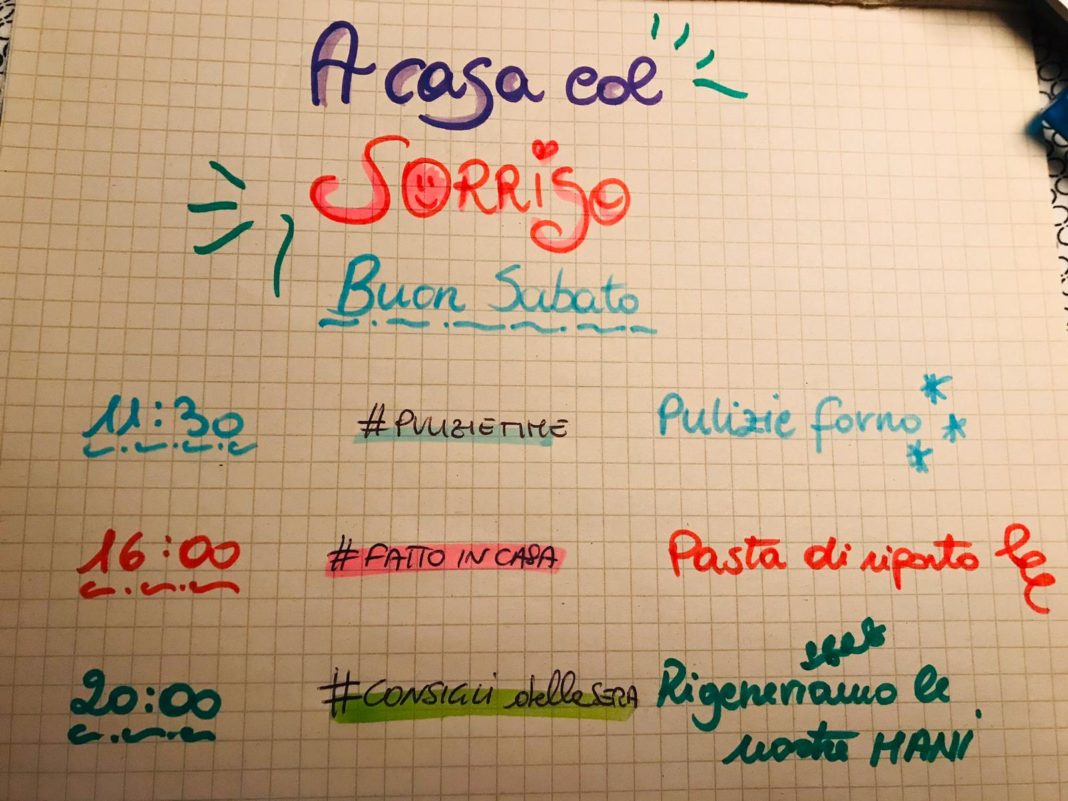 A casa col
SORRISO
Buon Sabato
11:30 #PULIZIETIME Pulizie forno
16:00 #FATTO IN CASA Pasta di riporto
20:00 #CONSIGLI della SERA Rigeneriamo le
nostre MANI